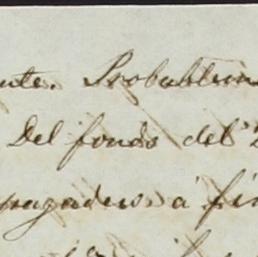 nte. Probablem
Del fondo del
pagaderos á fin